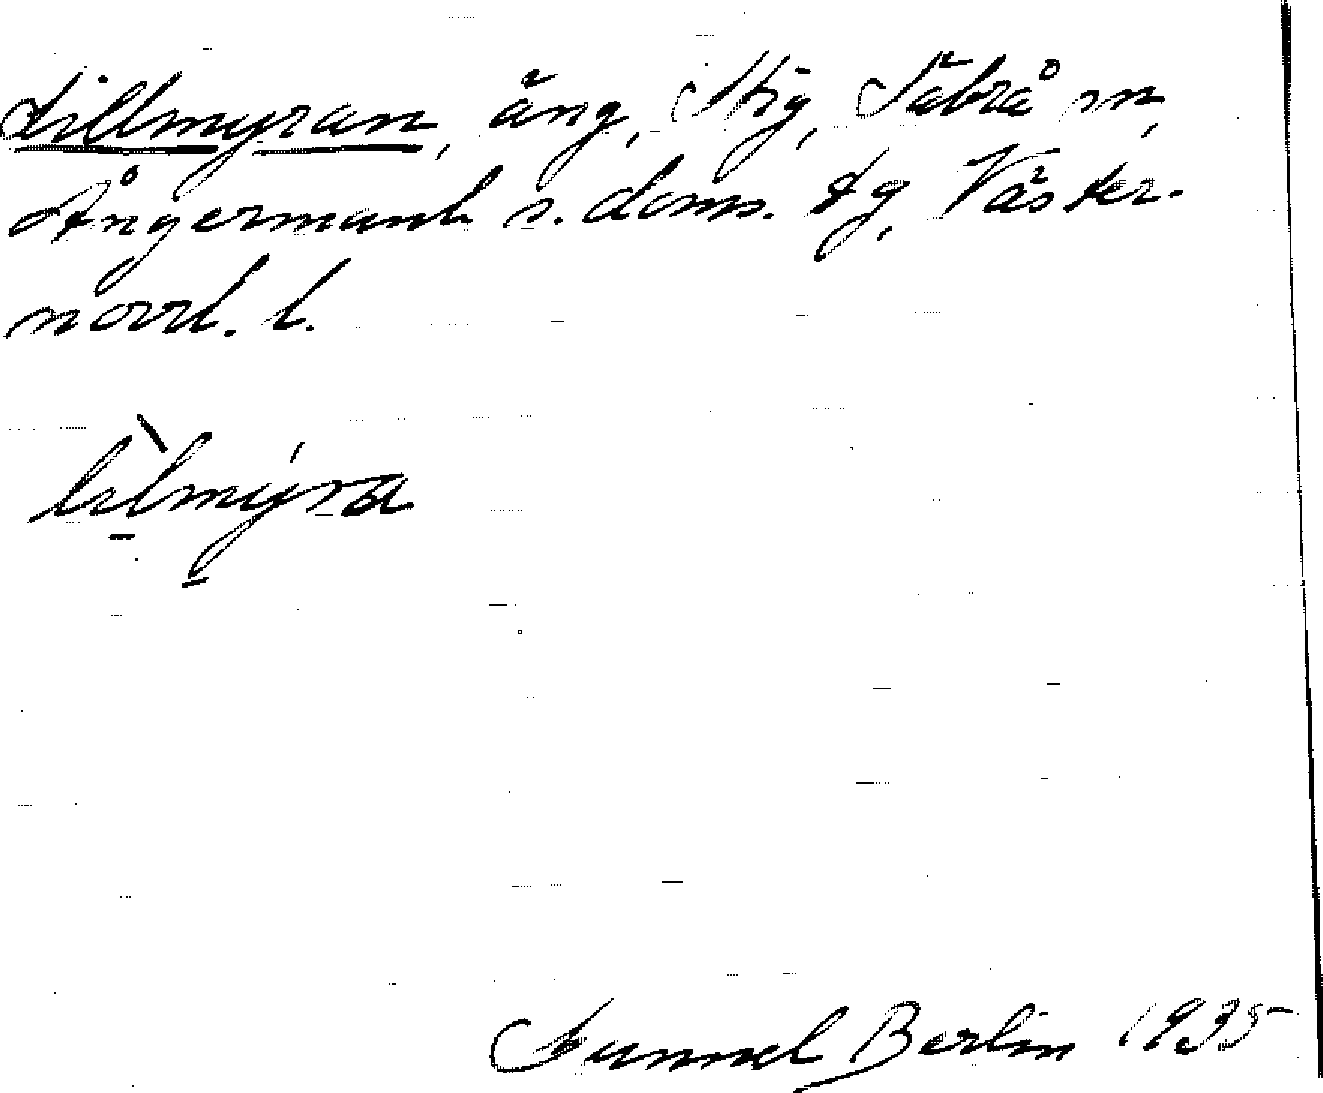 Lillmyran, äng, Stig, Säbrå sn,
Ångermanl. s. doms. tg, Väster-
norrl. l.
lìlmýra
Gunnel Berlin 1935